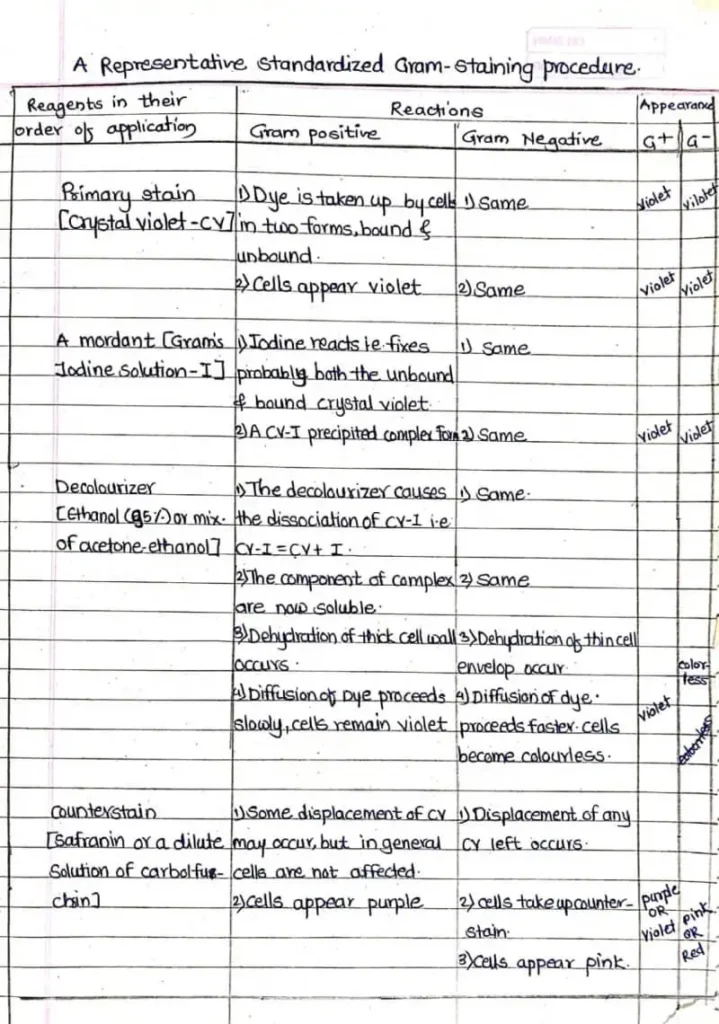 A Representative Standardized Gram-Staining procedure.
Reagents in their order of application
Reactions
Appearance
Gram positive
Gram Negative
G+
G-
Primary stain
[Crystal violet -CV]
1) Dye is taken up by cells
in two forms, bound &
unbound.
1) Same
violet
vilotet
2) Cells appear violet
2) Same
violet
violet
A mordant [Gram's
Iodine solution-I]
1) Iodine reacts i.e. fixes
probably both the unbound
& bound crystal violet.
1) Same
2) A CV-I precipited complex form
2) Same
violet
violet
Decolourizer
[Ethanol (95%) or mix.
of acetone-ethanol]
1) The decolourizer causes
the dissociation of CV-I i.e
CV-I = CV + I.
1) Same.
2) The component of complex
are now soluble.
2) Same
3) Dehydration of thick cell wall
occurs.
3) Dehydration of thin cell
envelop occur
color-
less
4) Diffusion of Dye proceeds
slowly, cells remain violet
4) Diffusion of dye.
proceeds faster. cells
become colourless.
violet
colourless
Counterstain
[safranin or a dilute
Solution of carbol fus-
chin]
1) Some displacement of CV
may occur, but in general
cells are not affected.
1) Displacement of any
CV left occurs.
2) cells appear purple
2) cells take up counter-
stain.
3) cells appear pink.
purple
OR
violet
pink
OR
Red